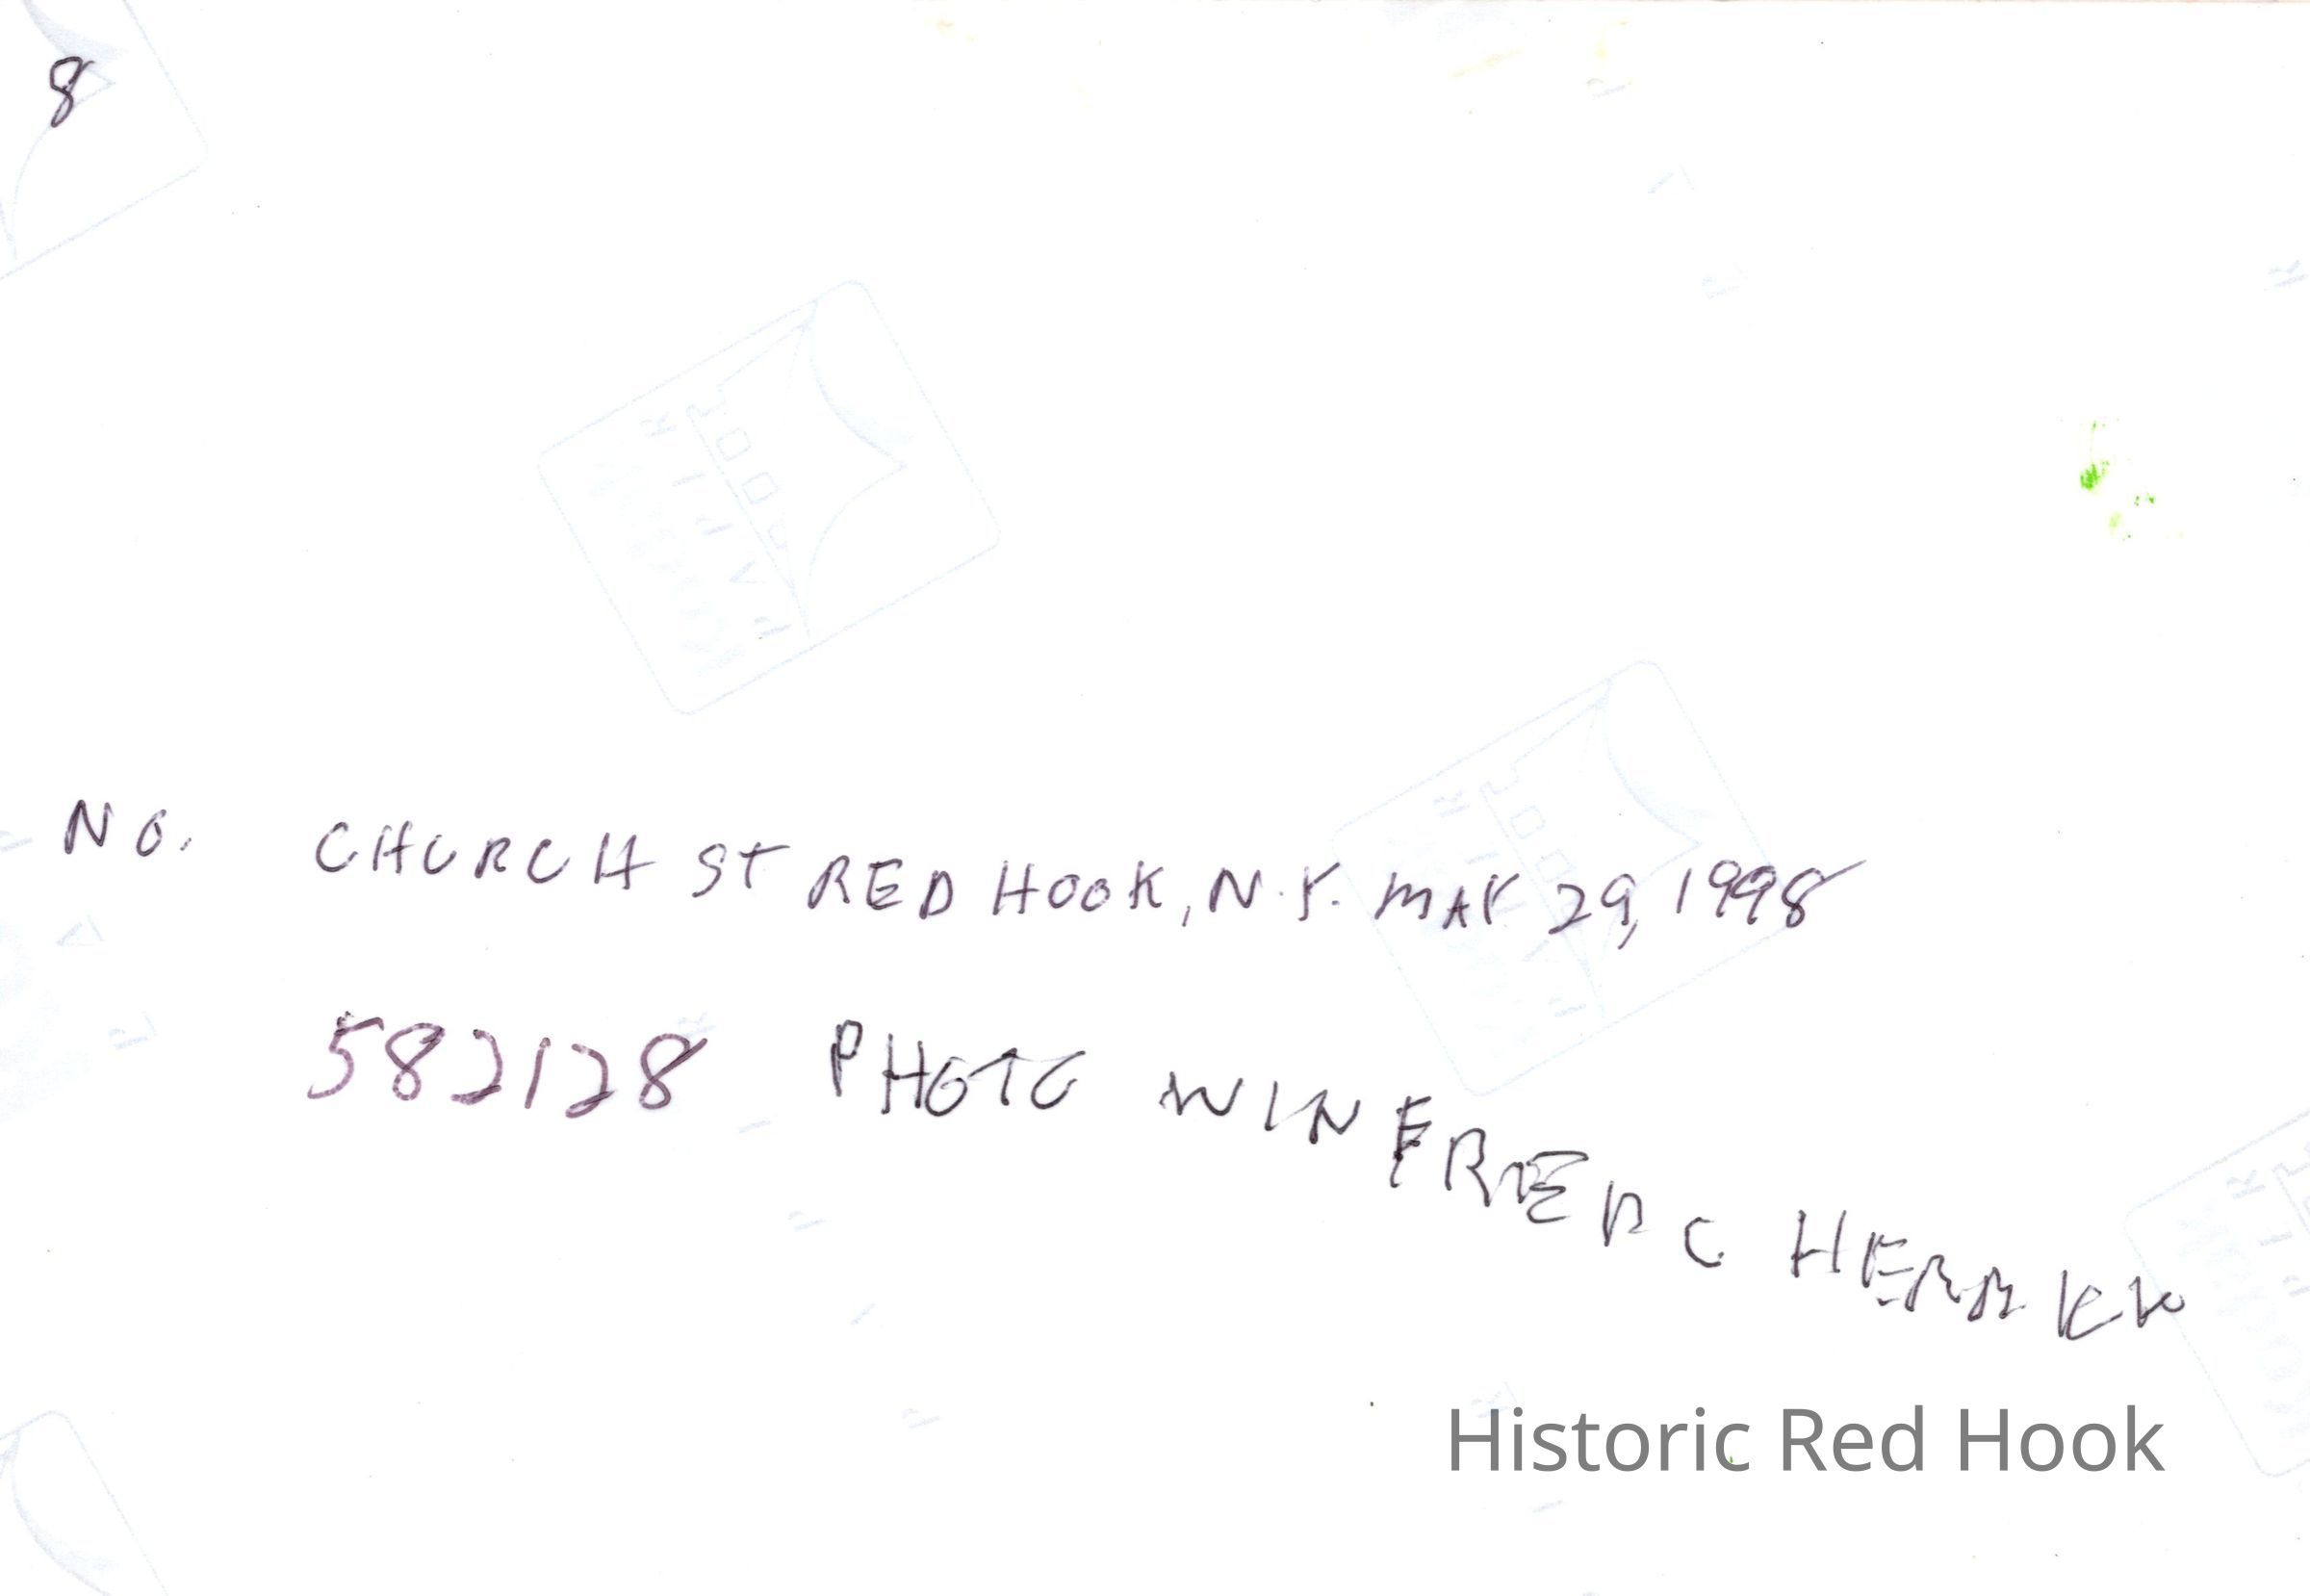 8
NO. CHURCH ST RED HOOK, N.Y. MAY 29, 1998
582128 PHOTO WINFRED C HERR
Historic Red Hook